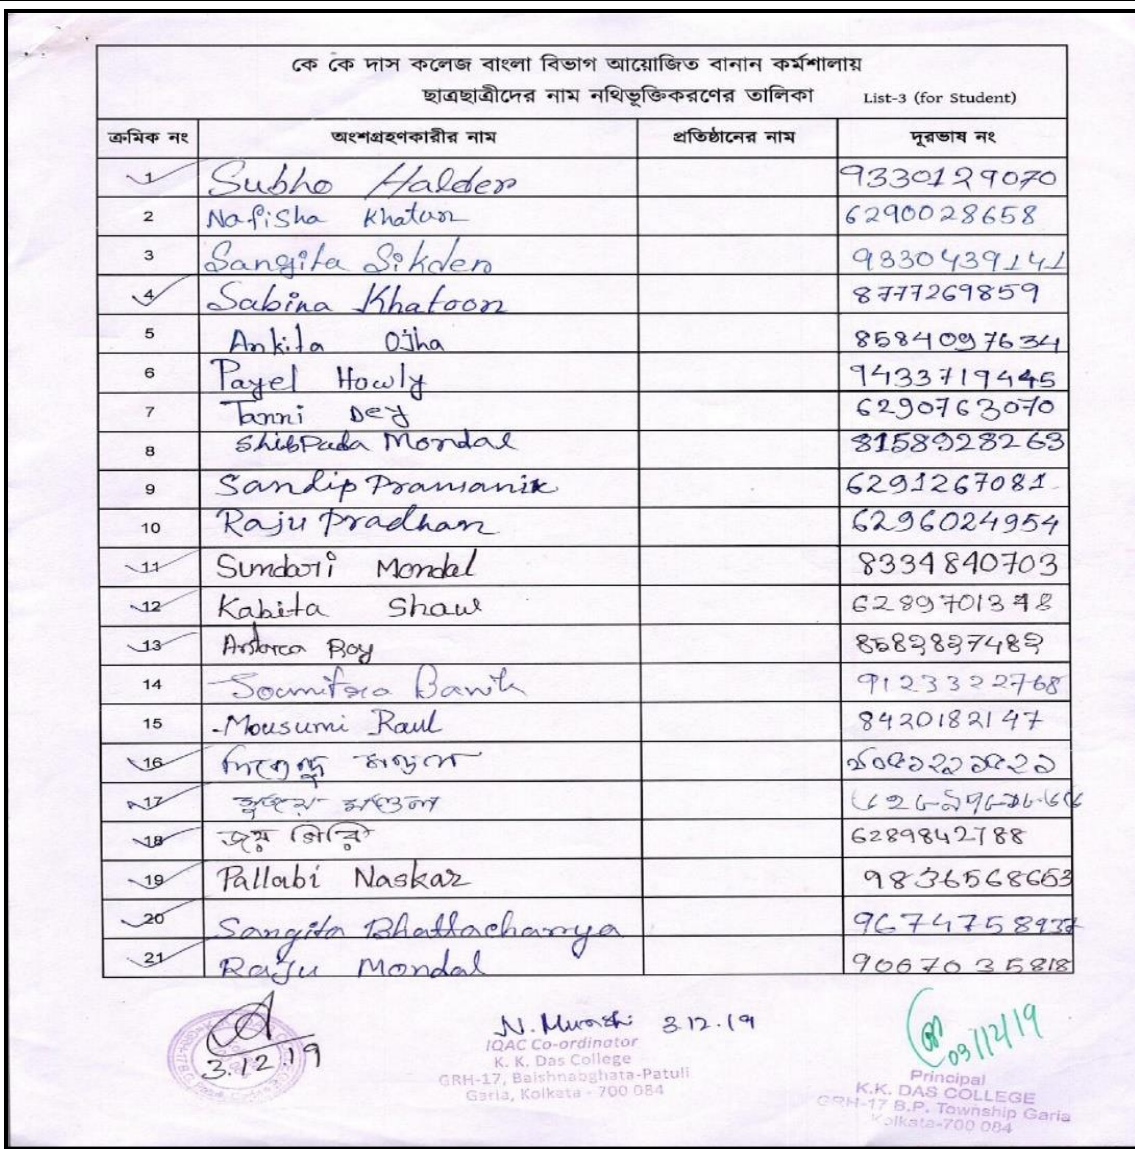 কে কে দাস কলেজ বাংলা বিভাগ আয়োজিত বানান কর্মশালায়
ছাত্রছাত্রীদের নাম নথিভূক্তিকরণের তালিকা List-3 (for Student)
ক্রমিক নং অংশগ্রহণকারীর নাম প্রতিষ্ঠানের নাম দূরভাষ নং
1 Subho Halder 9330129070
2 Nafisha Khatun 6290028658
3 Sangita Sikder 9330439141
4 Sabina Khatoon 8777269859
5 Ankita Ojha 8584097634
6 Payel Howly 9433719445
7 Tanni Dey 6290763070
8 ShibPada Mondal 8158928263
9 Sandip Pramanik 6291267081
10 Raju Pradhan 6296024954
11 Sundari Mondal 8334840703
12 Kabita Shaw 6289701348
13 Roy 8582827482
14 Soumitra Banik 9123322768
15 Mousumi Raul 8420182147
16 মণ্ডল
17 মণ্ডল
18 জয় গিরি 6289842788
19 Pallabi Naskar 9836568653
20 Sangita Bhattacharyya 9674758937
21 Raju Mondal 9067035818
3.12.19
N. Munshi 3.12.19
IQAC Co-ordinator
K. K. Das College
GRH-17, Baishnabghata-Patuli
Garia, Kolkata - 700 084
03/12/19
Principal
K.K. DAS COLLEGE
GRH-17 B.P. Township Garia
Kolkata-700 084